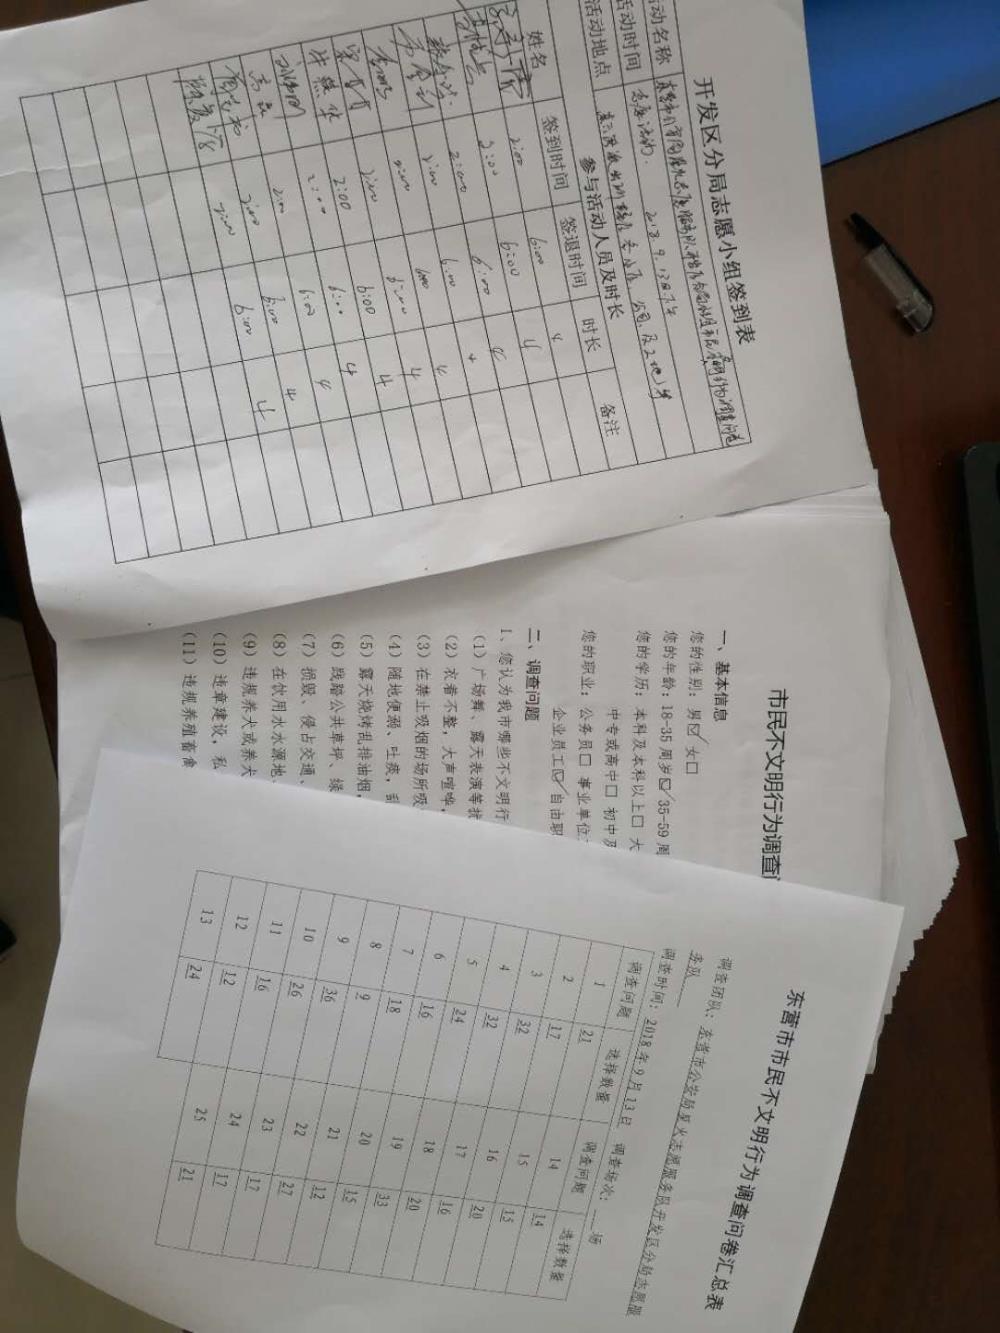 开发区分局志愿小组签到表
活动名称
活动时间 2018.9.13日下午
活动地点
参与活动人员及时长
姓名 签到时间 签退时间 时长 备注
2:00 6:00 4
2:00 6:00 4
2:00 6:00 4
2:00 6:00 4
2:00 6:00 4
2:00 6:00 4
2:00 6:00 4
2:00 6:00 4
2:00 6:00 4
2:00 6:00 4
市民不文明行为调查
一、基本信息
您的性别：男☑ 女□
您的年龄：18-35 周岁☑ 35-59 周
您的学历：本科及本科以上□ 大
中专或高中□ 初中及
您的职业：公务员□ 事业单位
企业员工☑ 自由职
二、调查问题
1、您认为我市哪些不文明行
（1）广场舞、露天表演等扰
（2）衣着不整，大声喧哗，
（3）在禁止吸烟的场所吸
（4）随地便溺、吐痰，乱
（5）露天烧烤乱排油烟，
（6）践踏公共草坪、绿
（7）损毁、侵占交通、
（8）在饮用水水源地、
（9）违规养犬或养犬
（10）违章建设，私
（11）违规养殖畜禽
东营市市民不文明行为调查问卷汇总表
调查团队：东营市公安局星火志愿服务队开发区分局志愿服
务队
调查时间：2018年9月13日 调查场次：一场
调查问题 选择数量 调查问题 选择数量
1 21 14 14
2 17 15 15
3 32 16 20
4 32 17 16
5 24 18 20
6 16 19 33
7 18 20 15
8 9 21 12
9 36 22 27
10 26 23 17
11 16 24 17
12 12 25 21
13 24